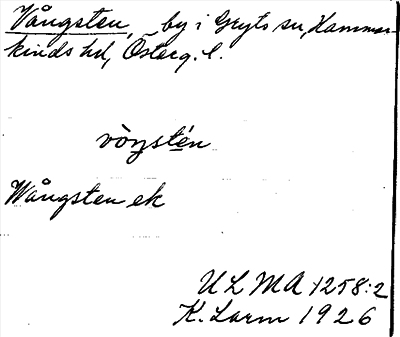 Vångsten, by i Gryts sn, Hammar-
kinds hd, Österg. l.
vòŋstén
Wångsten ek
ULMA 1258:2
K. Larm 1926